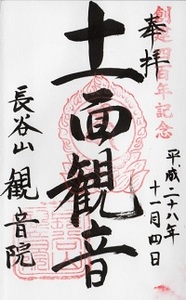 奉拝
創建四百年記念
平成二十八年
十一月四日
十一面観音
長谷山 観音院